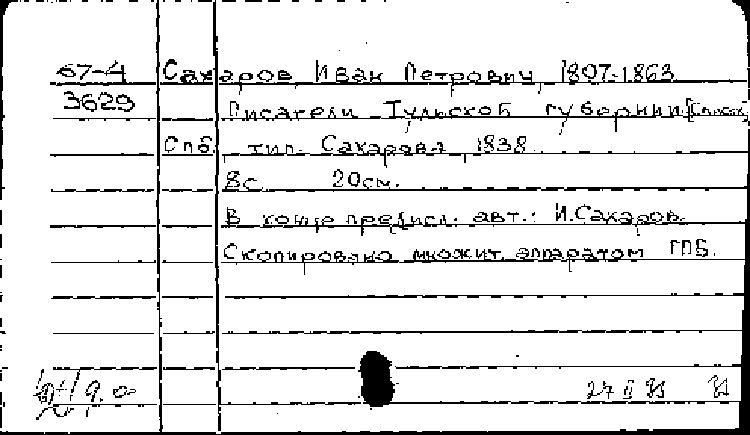 67-4 Сахаров, Иван Петрович, 1807-1863
3629 Писатели Тульской губернии [Список]
Спб., тип. Сахарова, 1838.
8с. 20см.
В конце предисл. авт.: И.Сахаров.
Скопировано множит. аппаратом ГПБ.
27 II